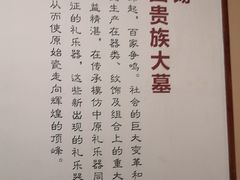 国贵族大墓
起，百家争鸣。社会的巨大变革和
生产在器类、纹饰及组合上的重大
益精湛，在传承模仿中原礼乐器同
征的礼乐器，这些新出现的礼乐器
从而使原始瓷走向辉煌的顶峰。